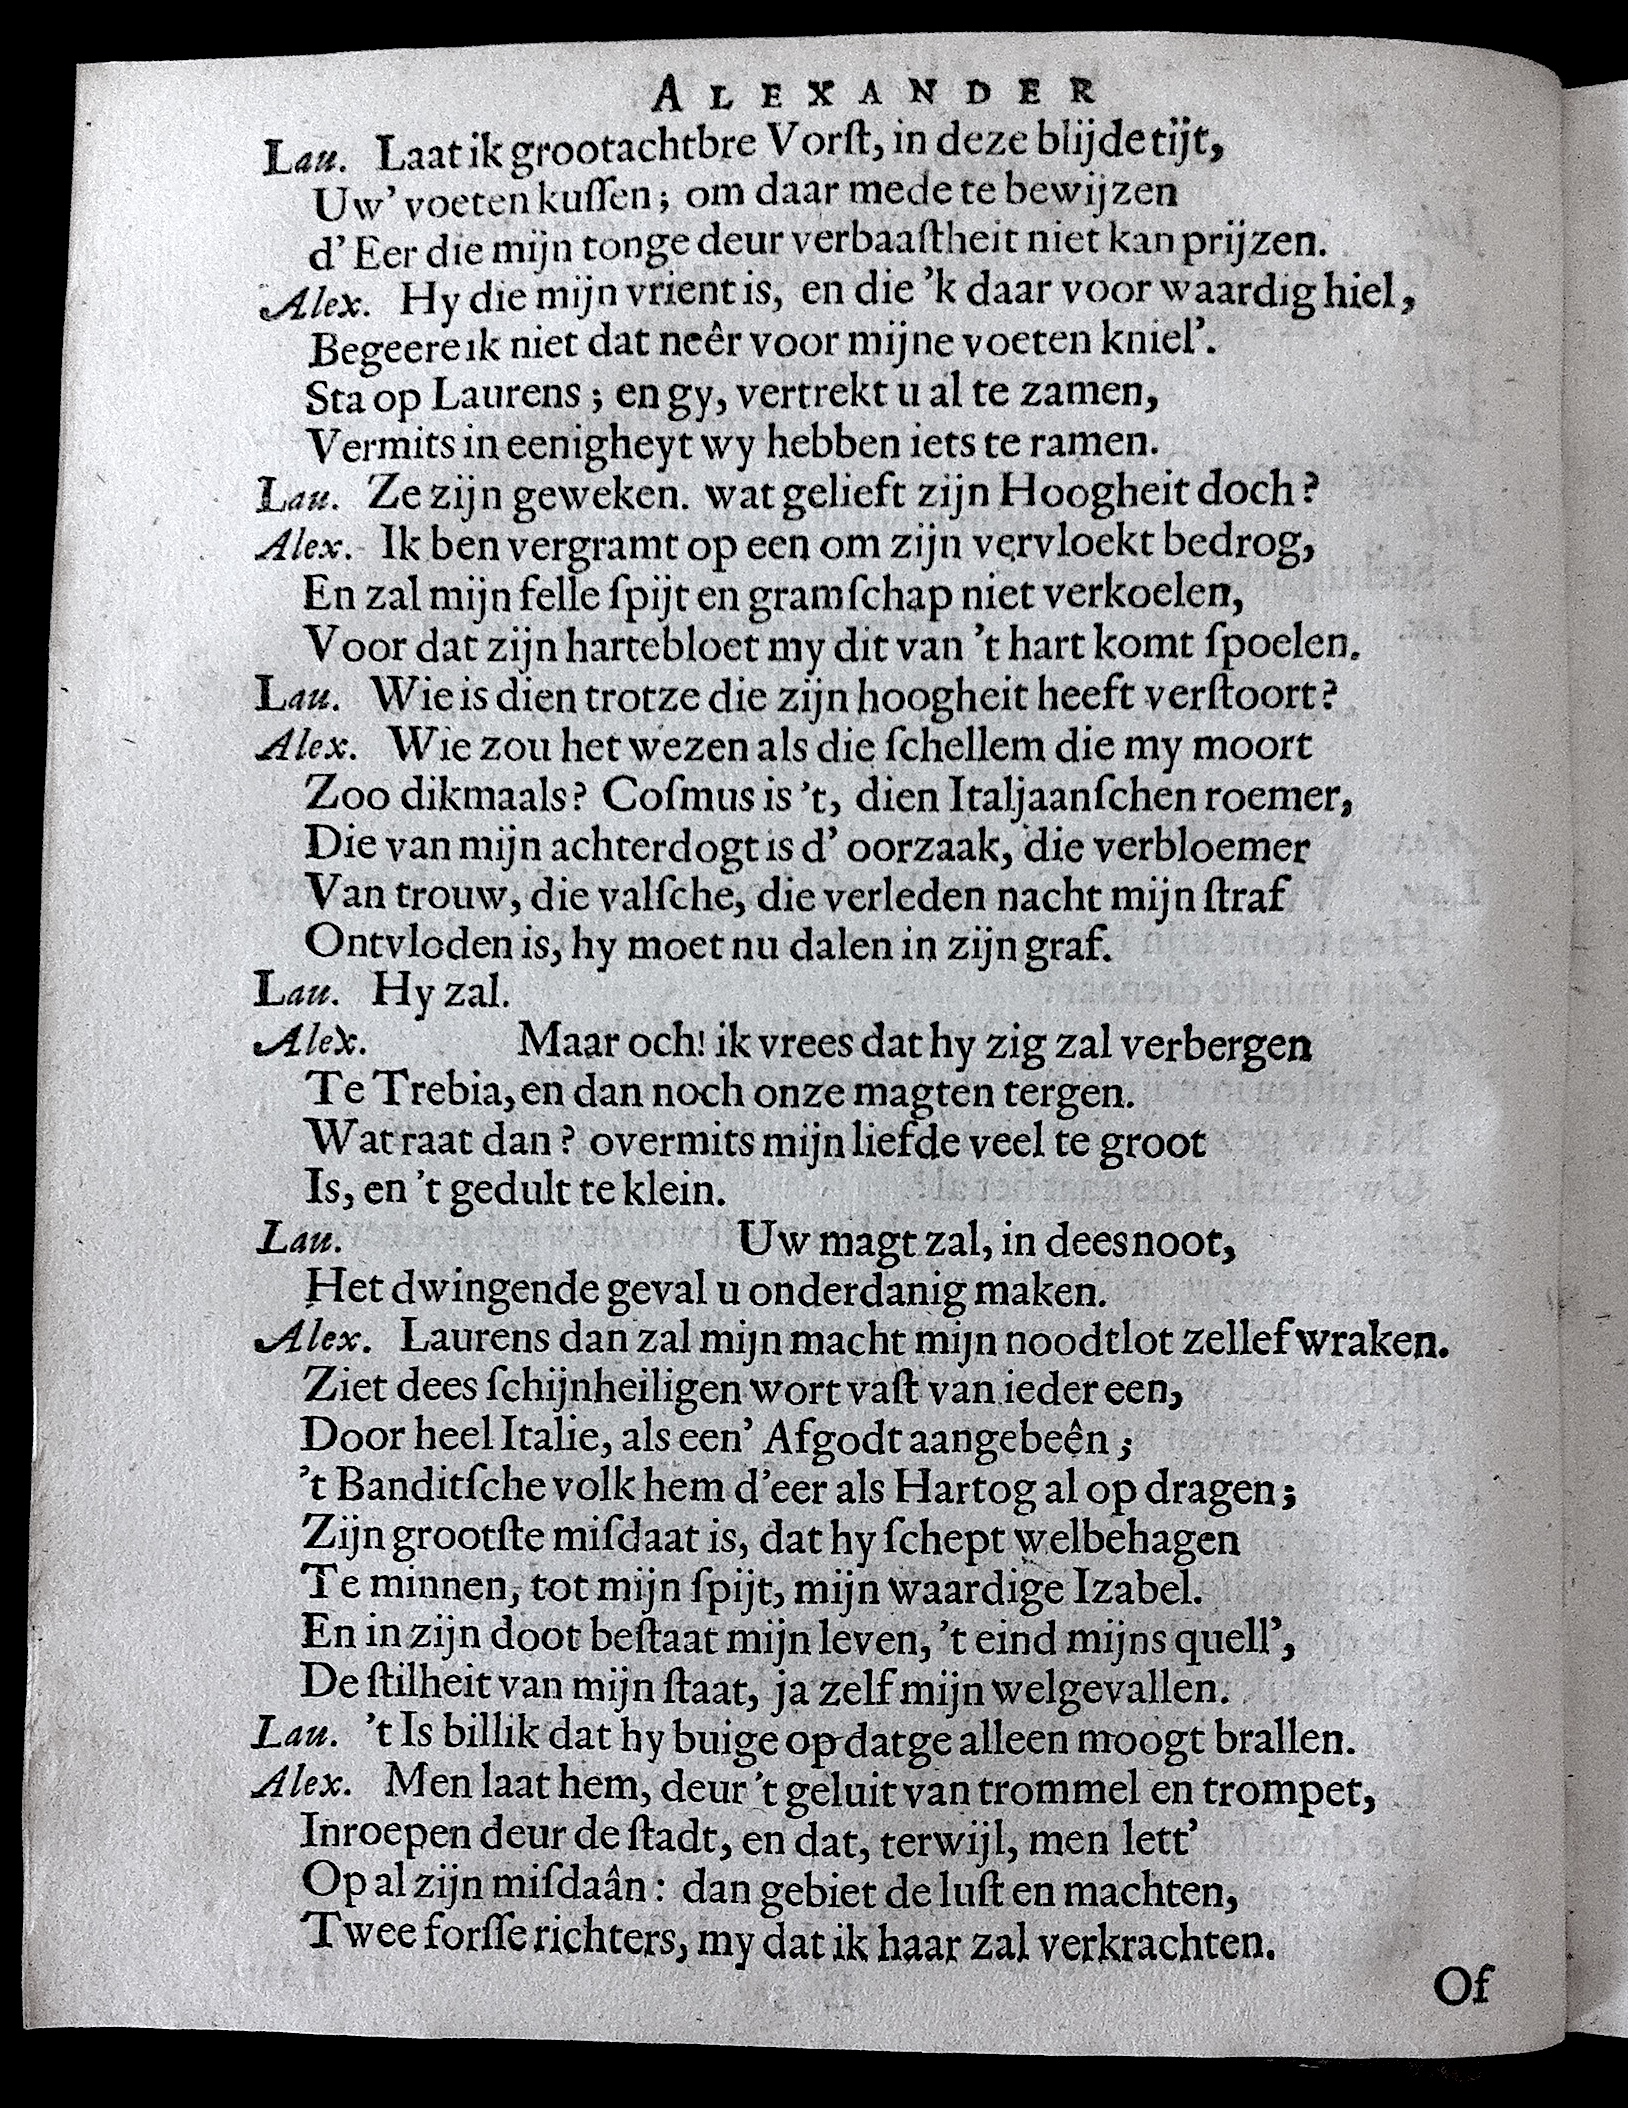 ALEXANDER
Lau. Laat ik grootachtbre Vorſt, in deze blijde tijt,
Uw' voeten kuſſen; om daar mede te bewijzen
d' Eer die mijn tonge deur verbaaſtheit niet kan prijzen.
Alex. Hy die mijn vrient is, en die 'k daar voor waardig hiel,
Begeere ik niet dat neêr voor mijne voeten kniel'.
Sta op Laurens; en gy, vertrekt u al te zamen,
Vermits in eenigheyt wy hebben iets te ramen.
Lau. Ze zijn geweken. wat gelieft zijn Hoogheit doch?
Alex. Ik ben vergramt op een om zijn vervloekt bedrog,
En zal mijn felle ſpijt en gramſchap niet verkoelen,
Voor dat zijn hartebloet my dit van 't hart komt ſpoelen.
Lau. Wie is dien trotze die zijn hoogheit heeft verſtoort?
Alex. Wie zou het wezen als die ſchellem die my moort
Zoo dikmaals? Coſmus is 't, dien Italjaanſchen roemer,
Die van mijn achterdogt is d' oorzaak, die verbloemer
Van trouw, die valſche, die verleden nacht mijn ſtraf
Ontvloden is, hy moet nu dalen in zijn graf.
Lau. Hy zal.
Alex. Maar och! ik vrees dat hy zig zal verbergen
Te Trebia, en dan noch onze magten tergen.
Wat raat dan? overmits mijn liefde veel te groot
Is, en 't gedult te klein.
Lau. Uw magt zal, in dees noot,
Het dwingende geval u onderdanig maken.
Alex. Laurens dan zal mijn macht mijn noodtlot zellef wraken.
Ziet dees ſchijnheiligen wort vaſt van ieder een,
Door heel Italie, als een' Afgodt aangebeên;
't Banditſche volk hem d'eer als Hartog al op dragen;
Zijn grootſte miſdaat is, dat hy ſchept welbehagen
Te minnen, tot mijn ſpijt, mijn waardige Izabel.
En in zijn doot beſtaat mijn leven, 't eind mijns quell',
De ſtilheit van mijn ſtaat, ja zelf mijn welgevallen.
Lau. 't Is billik dat hy buige op dat ge alleen moogt brallen.
Alex. Men laat hem, deur 't geluit van trommel en trompet,
Inroepen deur de ſtadt, en dat, terwijl, men lett'
Op al zijn miſdaân: dan gebiet de luſt en machten,
Twee forſſe richters, my dat ik haar zal verkrachten.
Of